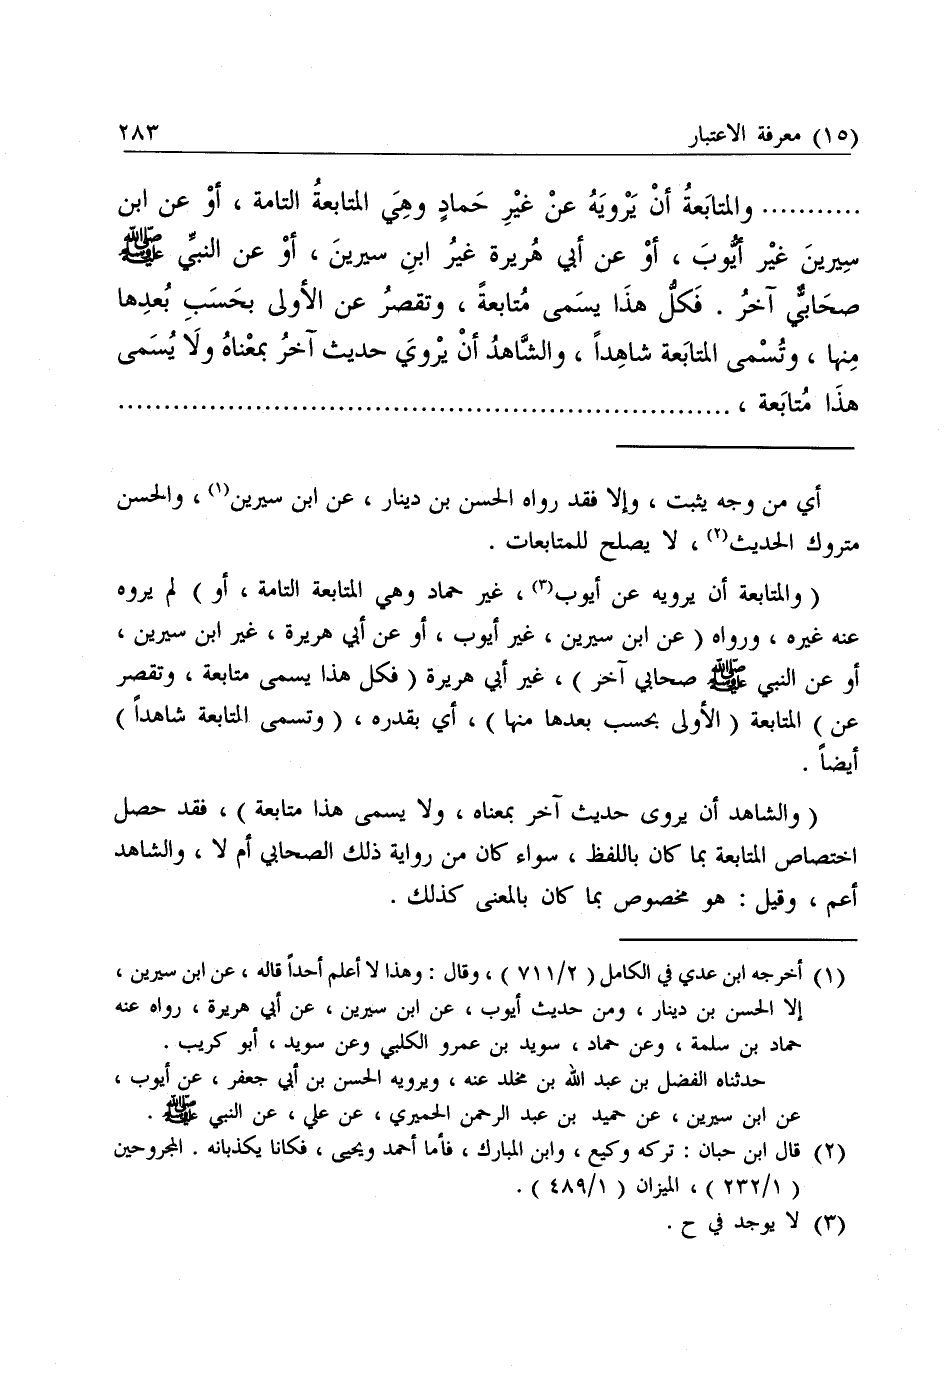 (١٥) معرفة الاعتبار ٢٨٣
........... والمتابَعةُ أنْ يَرْويَهُ عنْ غيْرِ حَمادٍ وهِيَ المتابعةُ التامة ، أوْ عن ابن
سِيرِينَ غيْر أيُّوبَ ، أوْ عن أبي هُريرة غيرُ ابنِ سيرينَ ، أوْ عن النبيِّ ﷺ
صحَابيٌّ آخرُ . فَكلُّ هذَا يسَمى مُتابعةً ، وتقصرُ عن الأولى بحَسَبِ بُعدِها
مِنها ، وتُسْمى المتابَعة شاهِداً ، والشَّاهدُ أنْ يْرويَ حديث آخرُ بمعْناهُ ولَا يُسَمى
هذَا مُتابَعة ، ...............................................................
أي من وجه يثبت ، وإلا فقد رواه الحسن بن دينار ، عن ابن سيرين(١) ، والحسن
متروك الحديث(٢) ، لا يصلح للمتابعات .
( والمتابعة أن يرويه عن أيوب(٣) ، غير حماد وهي المتابعة التامة ، أو ) لم يروه
عنه غيره ، ورواه ( عن ابن سيرين ، غير أيوب ، أو عن أبي هريرة ، غير ابن سيرين ،
أو عن النبي ﷺ صحابي آخر ) ، غير أبي هريرة ( فكل هذا يسمى متابعة ، وتقصر
عن ) المتابعة ( الأولى بحسب بعدها منها ) ، أي بقدره ، ( وتسمى المتابعة شاهداً )
أيضاً .
( والشاهد أن يروى حديث آخر بمعناه ، ولا يسمى هذا متابعة ) ، فقد حصل
اختصاص المتابعة بما كان باللفظ ، سواء كان من رواية ذلك الصحابي أم لا ، والشاهد
أعم ، وقيل : هو مخصوص بما كان بالمعنى كذلك .
(١) أخرجه ابن عدي في الكامل ( ٧١١/٢ ) ، وقال : وهذا لا أعلم أحداً قاله ، عن ابن سيرين ،
إلا الحسن بن دينار ، ومن حديث أيوب ، عن ابن سيرين ، عن أبي هريرة ، رواه عنه
حماد بن سلمة ، وعن حماد ، سويد بن عمرو الكلبي وعن سويد ، أبو كريب .
حدثناه الفضل بن عبد الله بن مخلد عنه ، ويرويه الحسن بن أبي جعفر ، عن أيوب ،
عن ابن سيرين ، عن حميد بن عبد الرحمن الحميري ، عن علي ، عن النبي ﷺ .
(٢) قال ابن حبان : تركه وكيع ، وابن المبارك ، فأما أحمد ويحيى ، فكانا يكذبانه . المجروحين
( ٢٣٢/١ ) ، الميزان ( ٤٨٩/١ ) .
(٣) لا يوجد في ح .